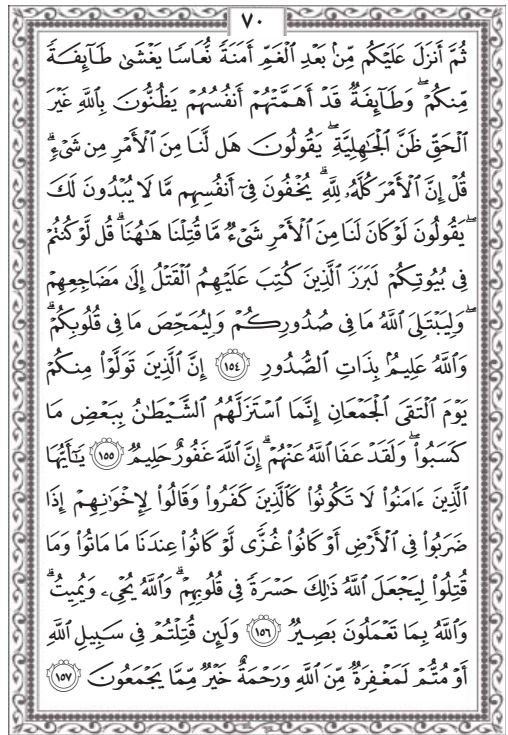 ٧٠
ثُمَّ أَنزَلَ عَلَيْكُم مِّنۢ بَعْدِ ٱلْغَمِّ أَمَنَةً نُّعَاسًا يَغْشَىٰ طَآئِفَةً
مِّنكُمْ ۖ وَطَآئِفَةٌ قَدْ أَهَمَّتْهُمْ أَنفُسُهُمْ يَظُنُّونَ بِٱللَّهِ غَيْرَ
ٱلْحَقِّ ظَنَّ ٱلْجَٰهِلِيَّةِ ۖ يَقُولُونَ هَل لَّنَا مِنَ ٱلْأَمْرِ مِن شَىْءٍ ۗ
قُلْ إِنَّ ٱلْأَمْرَ كُلَّهُۥ لِلَّهِ ۗ يُخْفُونَ فِىٓ أَنفُسِهِم مَّا لَا يُبْدُونَ لَكَ
ۖ يَقُولُونَ لَوْ كَانَ لَنَا مِنَ ٱلْأَمْرِ شَىْءٌ مَّا قُتِلْنَا هَٰهُنَا ۗ قُل لَّوْ كُنتُمْ
فِى بُيُوتِكُمْ لَبَرَزَ ٱلَّذِينَ كُتِبَ عَلَيْهِمُ ٱلْقَتْلُ إِلَىٰ مَضَاجِعِهِمْ
ۖ وَلِيَبْتَلِىَ ٱللَّهُ مَا فِى صُدُورِكُمْ وَلِيُمَحِّصَ مَا فِى قُلُوبِكُمْ ۗ
وَٱللَّهُ عَلِيمٌۢ بِذَاتِ ٱلصُّدُورِ ۝١٥٤ إِنَّ ٱلَّذِينَ تَوَلَّوْا۟ مِنكُمْ
يَوْمَ ٱلْتَقَى ٱلْجَمْعَانِ إِنَّمَا ٱسْتَزَلَّهُمُ ٱلشَّيْطَٰنُ بِبَعْضِ مَا
كَسَبُوا۟ ۖ وَلَقَدْ عَفَا ٱللَّهُ عَنْهُمْ ۗ إِنَّ ٱللَّهَ غَفُورٌ حَلِيمٌ ۝١٥٥ يَٰٓأَيُّهَا
ٱلَّذِينَ ءَامَنُوا۟ لَا تَكُونُوا۟ كَٱلَّذِينَ كَفَرُوا۟ وَقَالُوا۟ لِإِخْوَٰنِهِمْ إِذَا
ضَرَبُوا۟ فِى ٱلْأَرْضِ أَوْ كَانُوا۟ غُزًّى لَّوْ كَانُوا۟ عِندَنَا مَا مَاتُوا۟ وَمَا
قُتِلُوا۟ لِيَجْعَلَ ٱللَّهُ ذَٰلِكَ حَسْرَةً فِى قُلُوبِهِمْ ۗ وَٱللَّهُ يُحْىِۦ وَيُمِيتُ ۗ
وَٱللَّهُ بِمَا تَعْمَلُونَ بَصِيرٌ ۝١٥٦ وَلَئِن قُتِلْتُمْ فِى سَبِيلِ ٱللَّهِ
أَوْ مُتُّمْ لَمَغْفِرَةٌ مِّنَ ٱللَّهِ وَرَحْمَةٌ خَيْرٌ مِّمَّا يَجْمَعُونَ ۝١٥٧